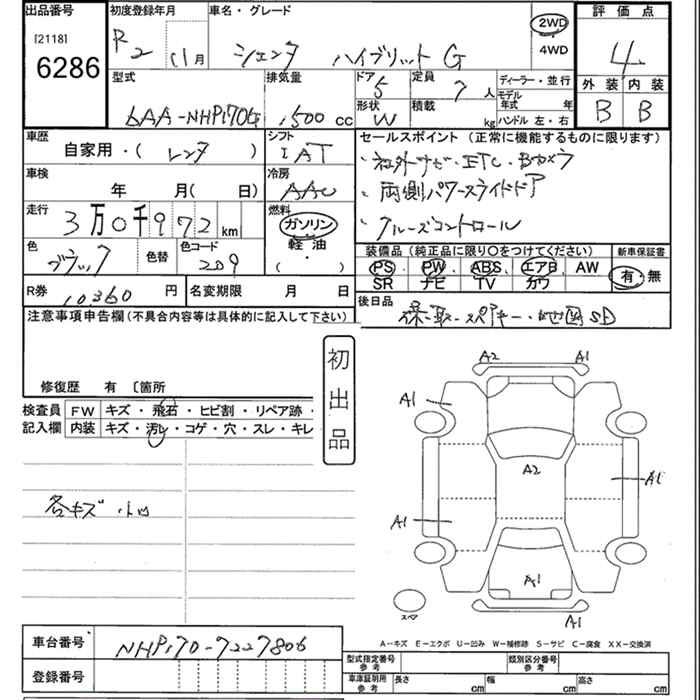 出品番号 初度登録年月 車名・グレード 評価点
[2118] 6286
R2 11月 シエンタ ハイブリット G 2WD 4WD 4
外装 内装
B B
型式 排気量 ドア 定員 ディーラー・並行
6AA-NHP170G 1500 cc 5 7人 モデル年式 年
形状 W 積載 kg ハンドル 左・右
車歴 シフト セールスポイント (正常に機能するものに限ります)
自家用・( レンタ ) IAT
・社外ナビ・ETC・Bカメラ
車検 年 月( 日) 冷房 AAC
・両側パワースライドドア
走行 3万0千972km 燃料 ガソリン 軽油 ( )
・クルーズコントロール
色 ブラック 色替 色コード 209
装備品 (純正品に限り○をつけてください) 新車保証書
PS PW ABS エアB AW 有・無
SR ナビ TV カワ
R券 10360 円 名変期限 月 日
後日品 保・取・スペアキー・地図SD
注意事項申告欄(不具合内容等は具体的に記入して下さい)
初出品
修復歴 有 〔箇所
検査員記入欄 FW キズ・飛石・ヒビ割・リペア跡・
内装 キズ・汚レ・コゲ・穴・スレ・キレ
各キズ 小凹
A2 A1
A1
A2
A1
A1
A1
A1
スペア
A-キズ E-エクボ U-凹み W-補修跡 S-サビ C-腐食 XX-交換済
車台番号 NHP170-7227806
型式指定番号 参考 類別区分番号 参考
登録番号
車庫証明用 参考 長さ cm 幅 cm 高さ cm